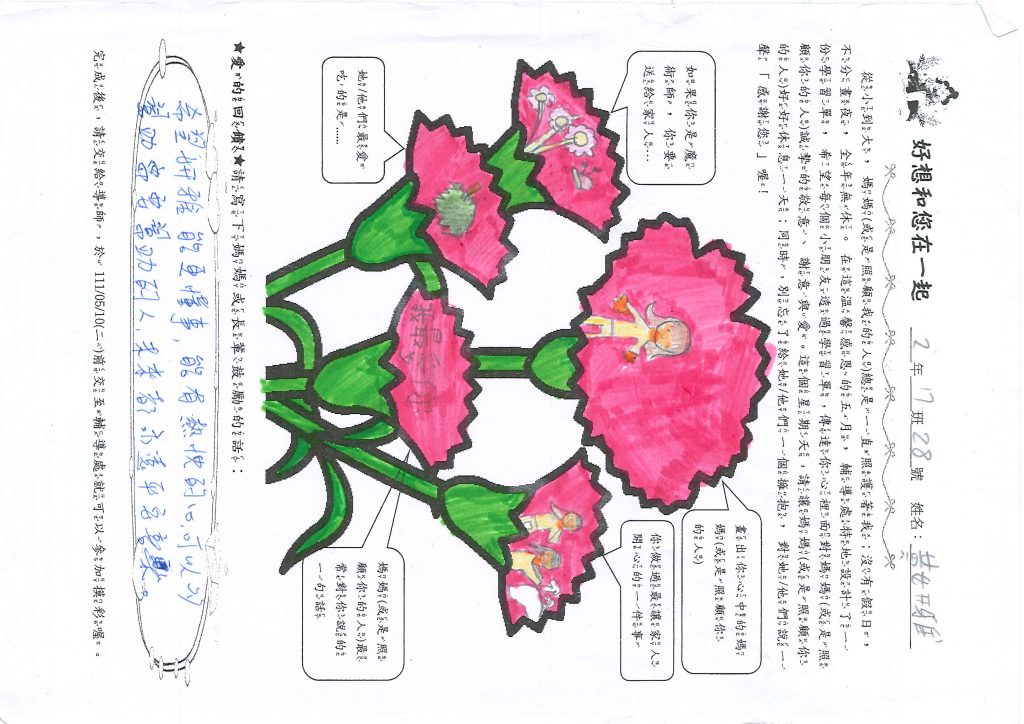 好想和您在一起 2年17班28號 姓名：黃妍雅
從小到大，媽媽(或是照顧我的人)總是一直照護著我；沒有假日，
不分晝夜，全年無休。在這溫馨感恩的五月，輔導處特地設計了一
份學習單，希望每個小朋友透過學習單，傳達你心裡面對媽媽(或是照
顧你的人)誠摯的敬意、謝意與愛。這個星期天，請讓媽媽(或是照顧你
的人)好好休息一天；同時，別忘了給她/他們一個擁抱，對她/他們說一
聲「感謝您」喔！
如果你是魔
術師，你要
送給家人…
畫出你心中的媽
媽(或是照顧你
的人)
你做過最讓家人
開心的一件事
她/他們最愛
吃的是……
我最愛你
媽媽(或是照
顧你的人)最
常對你說的
一句話
★愛的回饋★請寫下媽媽或長輩鼓勵的話：
希望妍雅能更懂事,能有熱忱的心可以
幫助需要幫助的人,未來都永遠平安喜樂。
完成後，請交給導師，於 111/05/10(二)前交至輔導處就可以參加摸彩喔。